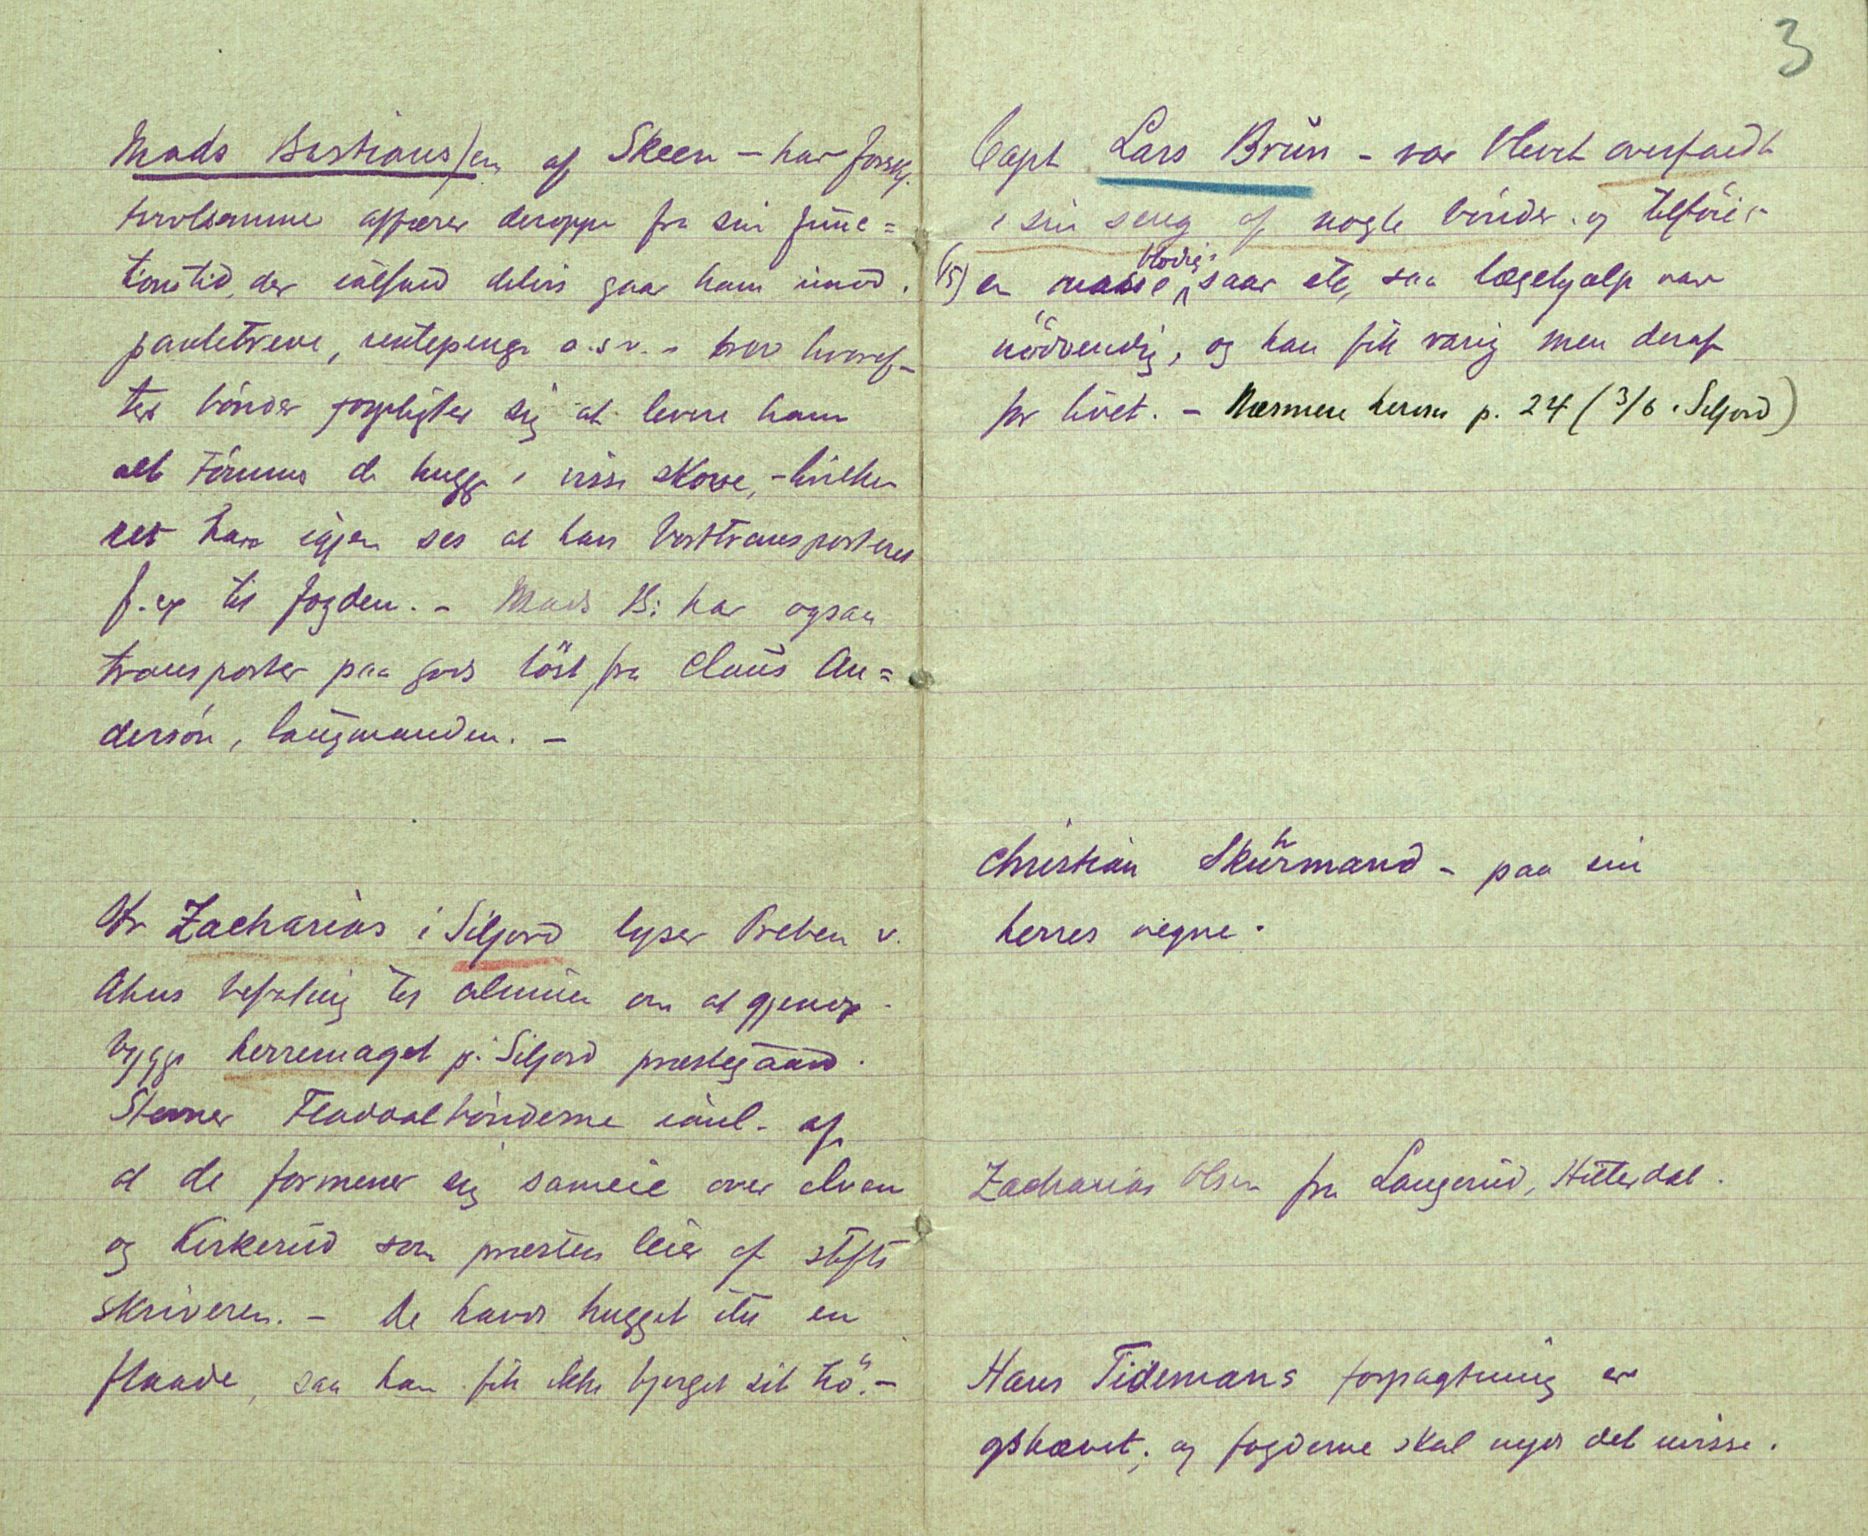 Mads Bastians/en af Skeen – har forskj.
tvivlsomme affærer deroppe fra sin func=
tionstid, der ialfald delvis gaar ham imod.
pantebreve, rentepenge o.s.v. – brev hvoref-
ter bönder forpligter sig at levere ham
alt tömmer de hugge i visse skove, – hvilken
ret han igjen ses at han borttransporterer
f.ex til fogden. – Mads B: har ogsaa
transporter paa gods löst fra Claus An=
dersön, laugmanden. –
Hr Zacharias i Siljord lyser Preben v.
Ahns befaling til almuen om at gjenop-
bygge herremaget p. Siljord præstegaard.
Stevner Fladdalbönderne ianl. af
at de formener sig sameie over elven
og Kirkerud som præsten leier af stifts
skriveren. – De havde hugget itu en
flaade, saa han fik ikke bjerget sit hö. –
3
Capt Lars Brun – var blevet overfaldt
i sin seng af nogle bönder og tilföiet
(15) en masse blodige saar etc, saa lægehjælp var
nödvendig, og han fik varig men deraf
for livet. – Nærmere herom p. 24 (3/6 i Seljord)
Christian Skuhrmand – paa sin
herres vegne.
Zacharias Olsen fra Langerud, Hitterdal.
Hans Tidemans forpagtning er
ophævet, og fogderne skal nyde det uvisse.